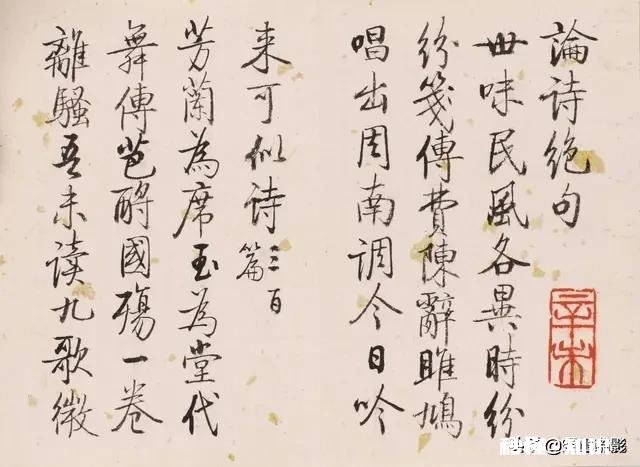 論诗绝句
辛未
世味民風各異時纷
纷箋傳費陳辭雎鳩
唱出周南调今日吟
来可似诗三百篇
芳蘭為席玉為堂代
舞傳芭酹國殤一卷
離騷吾未读九歌微